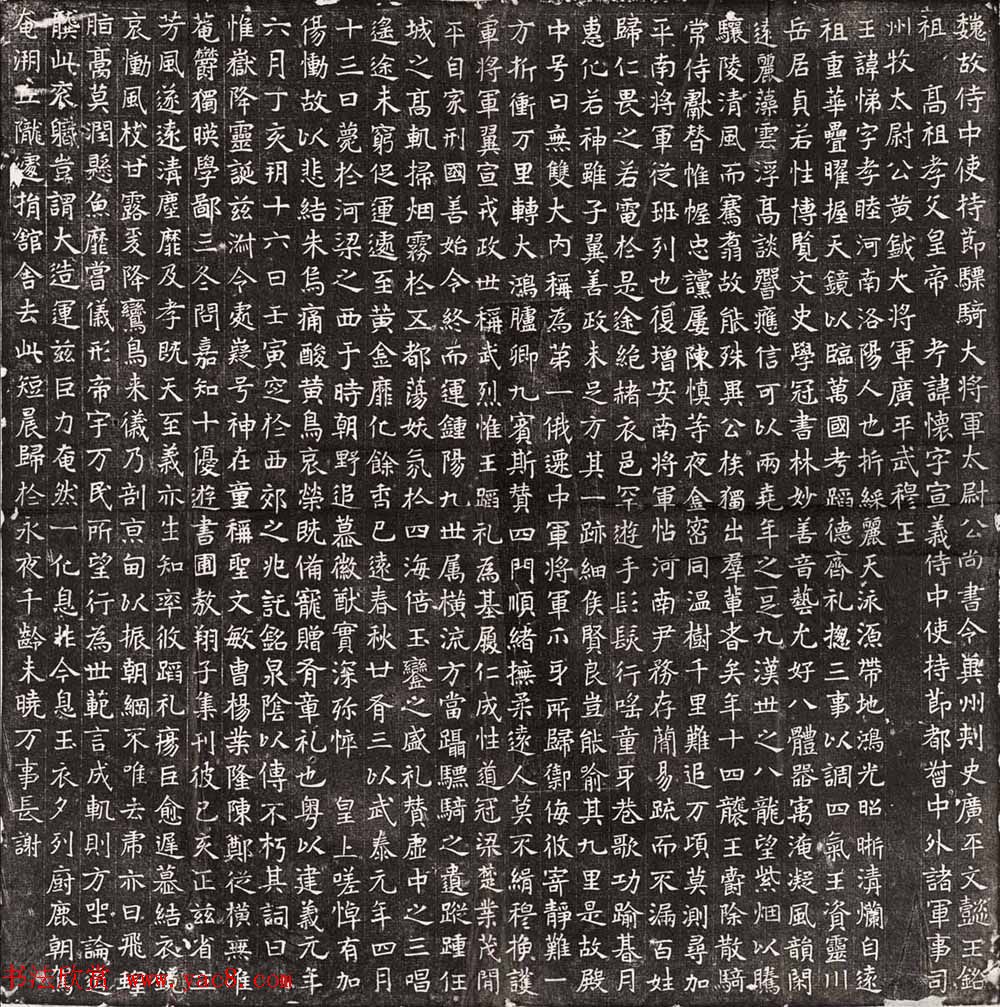 魏故侍中使持節驃騎大將軍太尉公尚書令冀州刾史廣平文懿王銘
祖　高祖孝文皇帝　考諱懷字宣義侍中使持節都督中外諸軍事司
州牧太尉公黃鉞大將軍廣平武穆王
王諱悌字孝睦河南洛陽人也折綵麗天泳源帶地鴻光昭晣清瀾自遠
祖重華疊曜握天鏡以臨萬國考蹈德齊礼揔三事以調四氣王資靈川
岳居貞若性博覽文史學冠書林妙善音藝尤好八體器寓淹凝風韻閑
遠麗藻雲浮髙談響應信可以兩堯年之二九漢世之八龍望紫烟以騰
驤陵清風而騫翥故能殊異公族獨出羣輩者矣年十四襲王爵除散騎
常侍獻替惟幄忠讜屢陳慎等夜金密同温樹千里難追万頃莫測尋加
平南將軍從班列也復增安南將軍怗河南尹務存蕳易䟽而不漏百姓
歸仁畏之若電於是途絶赭衣邑罕遊手髟髮行謡童牙巷歌功踰朞月
恵化若神雖子翼善政未足方其一跡細侯賢良豈能踰其九里是故殿
中号曰無雙大内稱爲第一俄遷中軍將軍爪牙所歸禦侮攸寄静難一
方折衝万里轉大鴻臚卿九賓斯賛四門順緒撫柔遠人莫不緝穆換護
軍將軍翼宣戎政世稱武烈惟王蹈礼爲基履仁成性道冠梁楚業茂閒
平自家刑國善始令終而運鍾陽九世属横流方當躡驃騎之遺蹤踵任
城之髙軌掃烟霧於五都蕩妖氛於四海倍玉鑾之盛礼賛虛中之三唱
遙途未窮促運遽至黄金靡化餘香已遠春秋廿有三以武泰元年四月
十三日薨於河梁之西于時朝野追慕徽猷實深弥悴　皇上嗟悼有加
傷慟故以悲結朱烏痛酸黄鳥哀榮既俻寵贈有章礼也粤以建義元年
六月丁亥玥十六日壬寅窆於西郊之兆託銘泉陰以傳不朽其詞曰
惟嶽降靈誕兹淵令處嶷号神在童稱聖文敏曹楊業隆陳鄭從横無准
菴欝獨暎學鄙三冬問嘉知十優遊書圃敖翔子集刊彼己亥正兹省
芳風遂遠清塵靡及孝既天至義亦生知率攸蹈礼瘍巨愈遲慕結衣
哀慟風枝甘露夏降鸞鳥来儀乃剖京甸以振朝綱不唯去肅亦曰飛
脂膏莫潤懸魚靡當儀形帝宇万民所望行爲世範言成軌則方坐論道
賛此衮職豈謂大造運兹巨力奄然一化息非今息玉衣夕列厨鹿朝
奄溯丘隴遽捐舘舍去此短晨歸於永夜千齡未曉万事長謝
书法欣赏 www.yac8.com